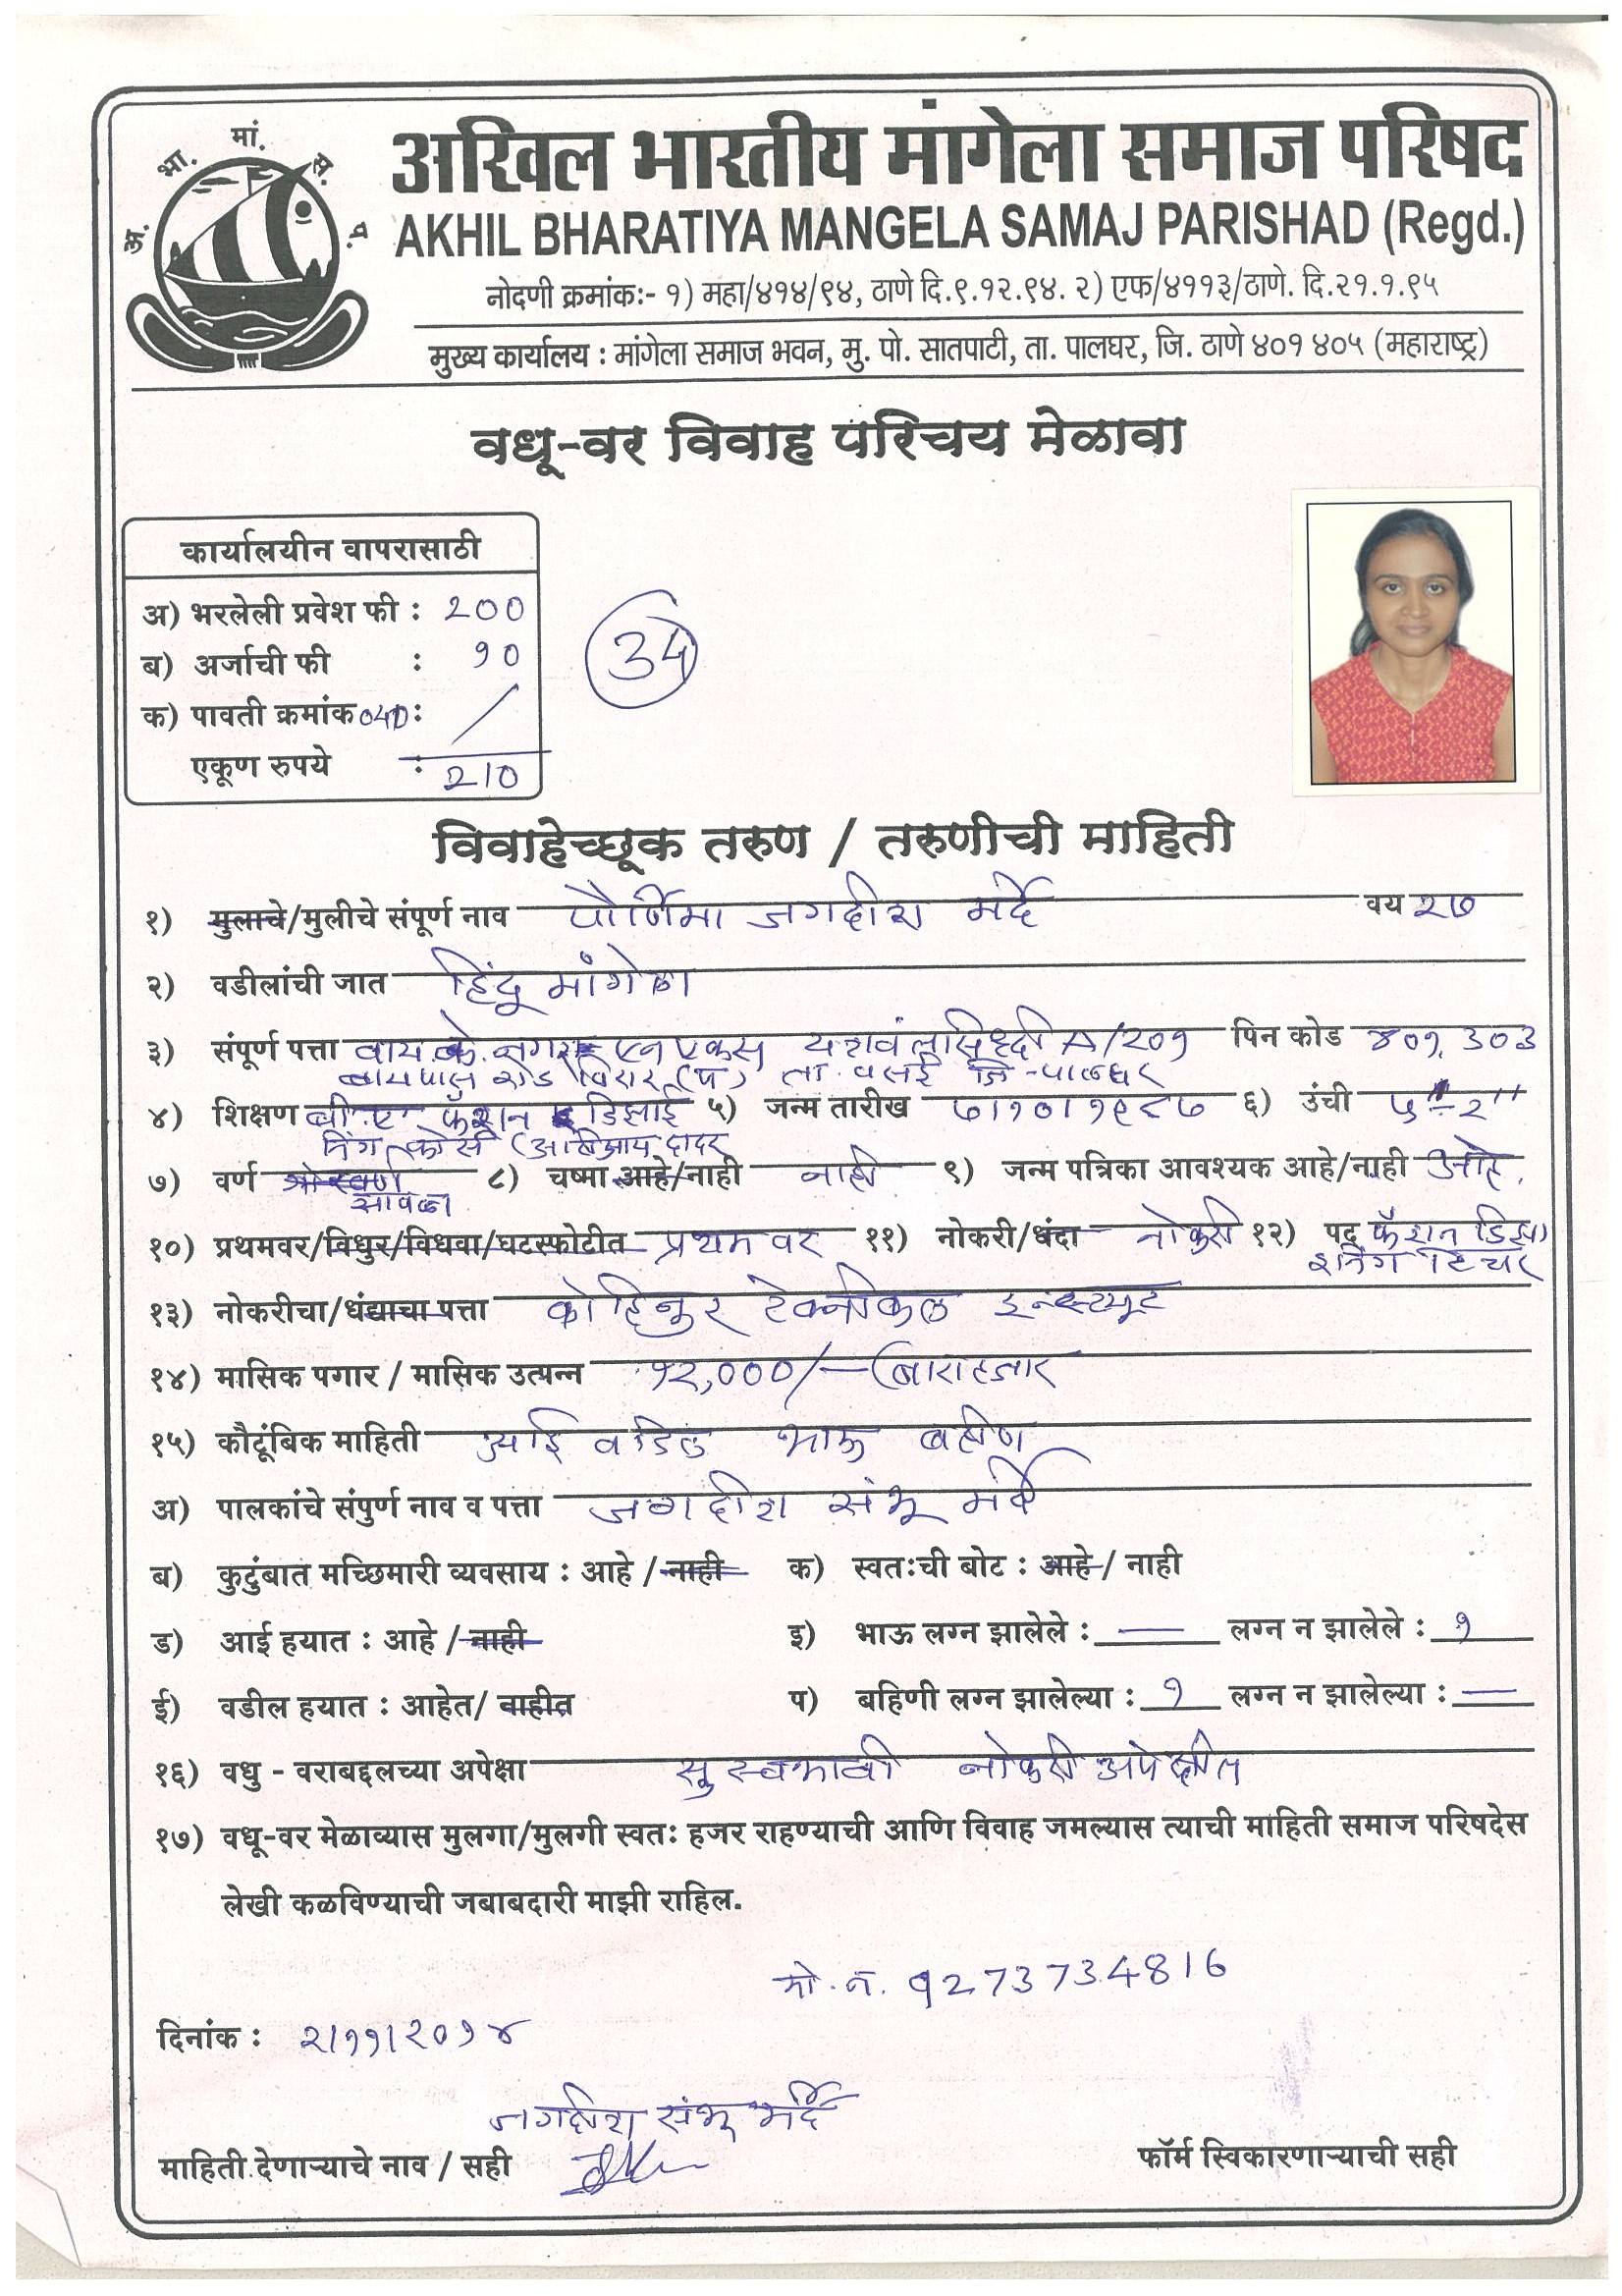 अ. भा. मां. स. प.
अखिल भारतीय मांगेला समाज परिषद
AKHIL BHARATIYA MANGELA SAMAJ PARISHAD (Regd.)
नोदणी क्रमांकः- १) महा/४१४/९४, ठाणे दि.९.१२.९४. २) एफ/४११३/ठाणे. दि.२१.१.९५
मुख्य कार्यालय : मांगेला समाज भवन, मु. पो. सातपाटी, ता. पालघर, जि. ठाणे ४०१ ४०५ (महाराष्ट्र)
वधू-वर विवाह परिचय मेळावा
कार्यालयीन वापरासाठी
अ) भरलेली प्रवेश फी : २००
ब) अर्जाची फी : १०
क) पावती क्रमांक :
एकूण रुपये : 210
विवाहेच्छूक तरुण / तरुणीची माहिती
१) मुलाचे/मुलीचे संपूर्ण नाव पौर्णिमा जगदीश मर्दे वय २७
२) वडीलांची जात हिंदू मांगेला
३) संपूर्ण पत्ता वाय.के.नगर एन एक्स यशवंत सिध्दी A/२०१ पिन कोड ४०१,३०३
बायपास रोड विरार (प) ता. वसई जि-पालघर
४) शिक्षण बी.ए फॅशन डिझाई ५) जन्म तारीख ७।१०।१९८७ ६) उंची ५"-२"
निंग कोर्स दादर
७) वर्ण ८) चष्मा आहे/नाही नाही ९) जन्म पत्रिका आवश्यक आहे/नाही आहे.
सावळा
१०) प्रथमवर/विधुर/विधवा/घटस्फोटीत प्रथम वर ११) नोकरी/धंदा नोकरी १२) पद फॅशन डिझा
इनिंग टिचर
१३) नोकरीचा/धंद्याचा पत्ता कोहिनुर टेक्नीकल इन्स्टयुट
१४) मासिक पगार / मासिक उत्पन्न १२,०००/- (बाराहजार
१५) कौटूंबिक माहिती आई वडिल भाऊ बहीण
अ) पालकांचे संपुर्ण नाव व पत्ता जगदीश संभू मर्दे
ब) कुटुंबात मच्छिमारी व्यवसाय : आहे / नाही क) स्वतःची बोट : आहे / नाही
ड) आई हयात : आहे / नाही इ) भाऊ लग्न झालेले : — लग्न न झालेले : १
ई) वडील हयात : आहेत/ नाहीत प) बहिणी लग्न झालेल्या : १ लग्न न झालेल्या : —
१६) वधु - वराबद्दलच्या अपेक्षा सु स्वभावी नोकरी अपेक्षीत
१७) वधू-वर मेळाव्यास मुलगा/मुलगी स्वतः हजर राहण्याची आणि विवाह जमल्यास त्याची माहिती समाज परिषदेस
लेखी कळविण्याची जबाबदारी माझी राहिल.
मो. नं. 9273734816
दिनांक : २।११।२०१४
जगदीश संभू मर्दे
माहिती देणाऱ्याचे नाव / सही फॉर्म स्विकारणाऱ्याची सही